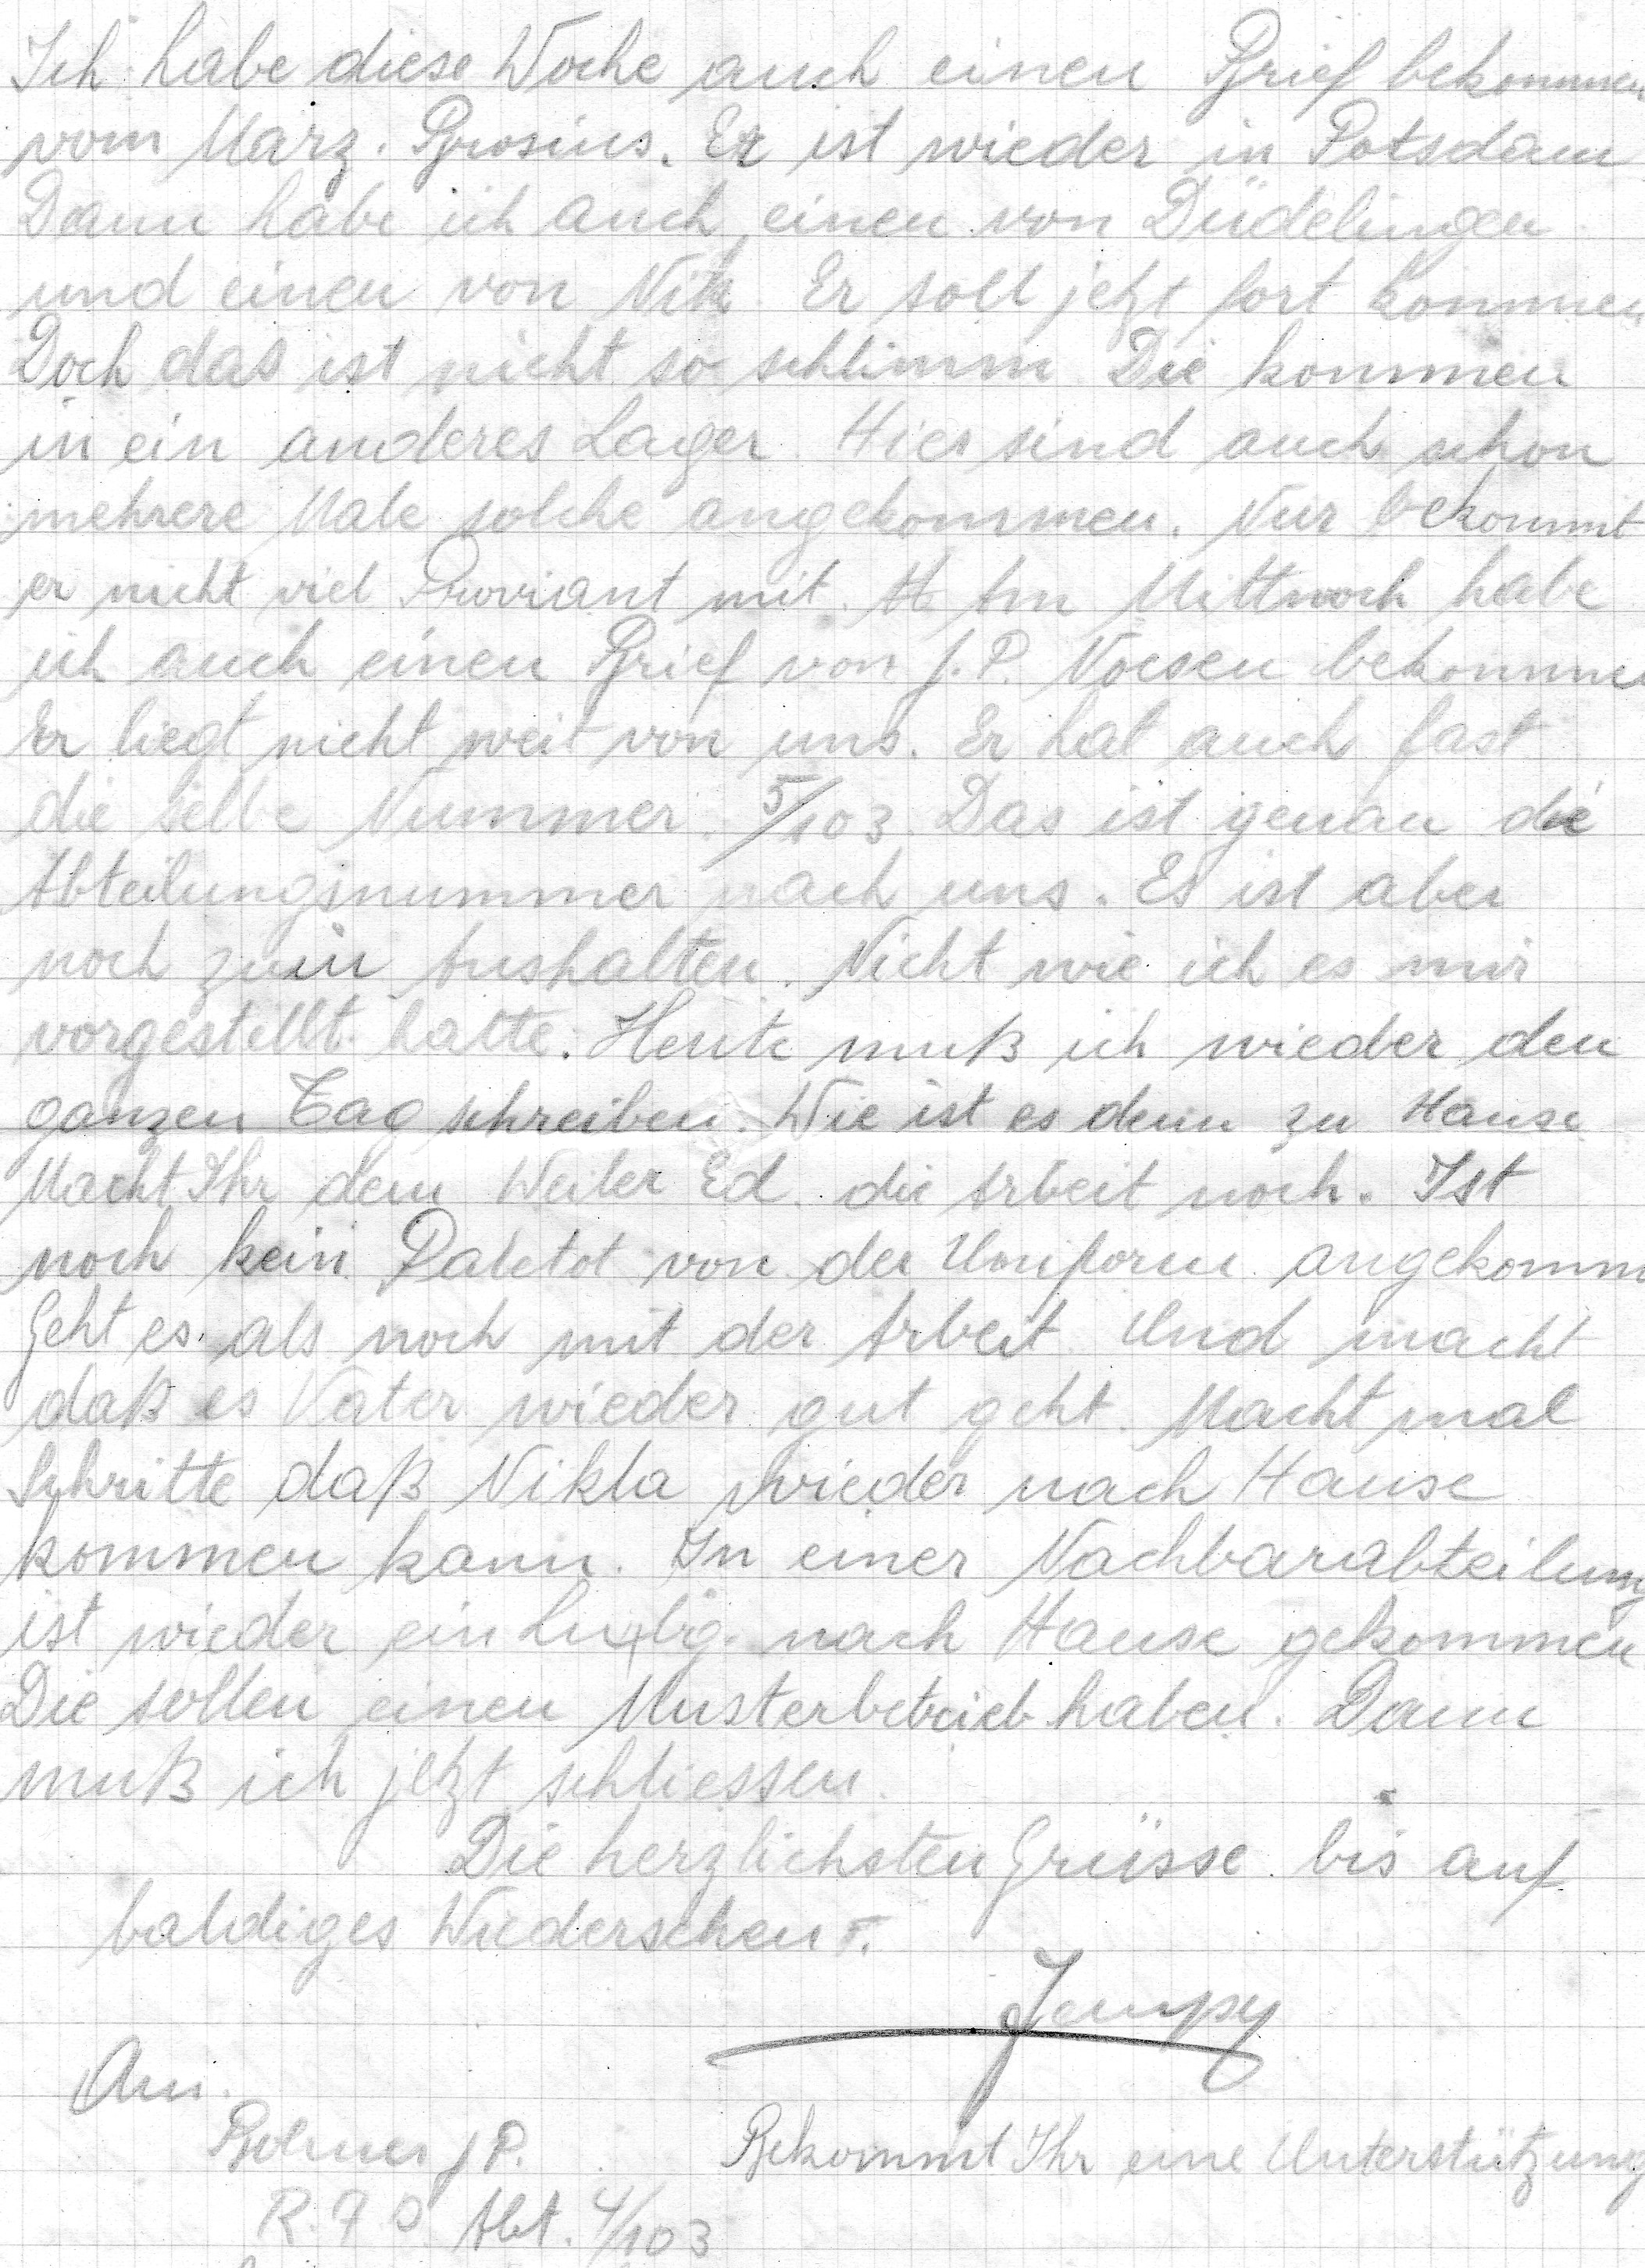 Ich habe diese Woche auch einen Brief bekommen
vom Marz. Brosius. Er ist wieder in Potsdam
Dann habe ich auch einen von Düdelingen
und einen von Nik. Er soll jetzt fort kommen
Doch das ist nicht so schlimm Die kommen
in ein anderes Lager. Hier sind auch schon
mehrere Male solche angekommen. Nur bekommt
er nicht viel Proviant mit. Am Mittwoch habe
ich auch einen Brief von J. P. Noesen bekommen
Er liegt nicht weit von uns. Er hat auch fast
die selbe Nummer. 5/103 Das ist genau die
Abteilungsnummer nach uns. Es ist aber
noch zum Aushalten. Nicht wie ich es mir
vorgestellt hatte. Heute muß ich wieder den
ganzen Tag schreiben. Wie ist es denn zu Hause
Macht Ihr dem Weiler Ed. die Arbeit noch. Ist
noch kein Paket von der Uniform angekomm
Geht es als noch mit der Arbeit Und macht
daß es Vater wieder gut geht. Macht mal
Schritte daß Nikla wieder nach Hause
kommen kann. In einer Nachbarabteilung
ist wieder ein Luxbg. nach Hause gekommen
Die sollen einen Musterbetrieb haben. Dann
muß ich jetzt schliessen.
Die herzlichsten Grüsse bis auf
baldiges Wiedersehen.
Jempy
An.
J P.
Bekommt Ihr eine Unterstützung
R. A D. Abt. 4/103